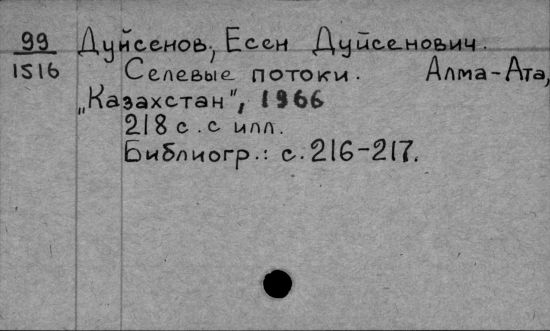 99 Дуйсенов, Есен Дуйсенович.
1516 Селевые потоки. Алма-Ата,
„Казахстан", 1966
218 с. с илл.
Библиогр.: с. 216-217.